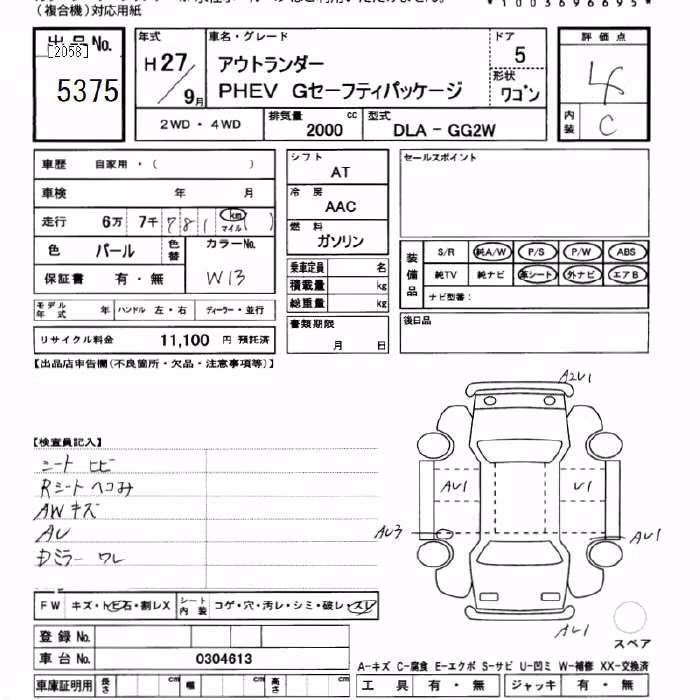 (複合機)対応用紙
*1003696695*
出品 No.
[2058]
5375
年式
H27/9月
車名・グレード
アウトランダー
PHEV Gセーフティパッケージ
ドア
5
形状
ワゴン
評価点
4
内装
C
2WD・4WD
排気量
2000 cc
型式
DLA－GG2W
車歴 自家用・( )
車検 年 月
走行 6万 7千 781 (km マイル)
色 パール 色替 カラーNo. W13
保証書 有・無
モデル年式 年 ハンドル 左・右 ディーラー・並行
リサイクル料金 11,100 円 預託済
シフト
AT
冷房
AAC
燃料
ガソリン
乗車定員 名
積載量 kg
総重量 kg
書類期限
月 日
セールスポイント
装備品
S/R 純A/W P/S P/W ABS
純TV 純ナビ 革シート 外ナビ エアB
ナビ型番:
後日品
【出品店申告欄(不良箇所・欠品・注意事項等)】
【検査員記入】
シート ヒビ
Rシート ヘコみ
AWキズ
AU
ミラー ワレ
A2U1
AU1
U1
AU3
AU1
AU1
スペア
FW キズ・トビ石・割レX シート内装 コゲ・穴・汚レ・シミ・破レ・スレ
登録 No.
車台 No. 0304613
A－キズ C－腐食 E－エクボ S－サビ U－凹ミ W－補修 XX－交換済
車庫証明用 長さ cm 幅 cm 高さ cm
工具 有・無 ジャッキ 有・無